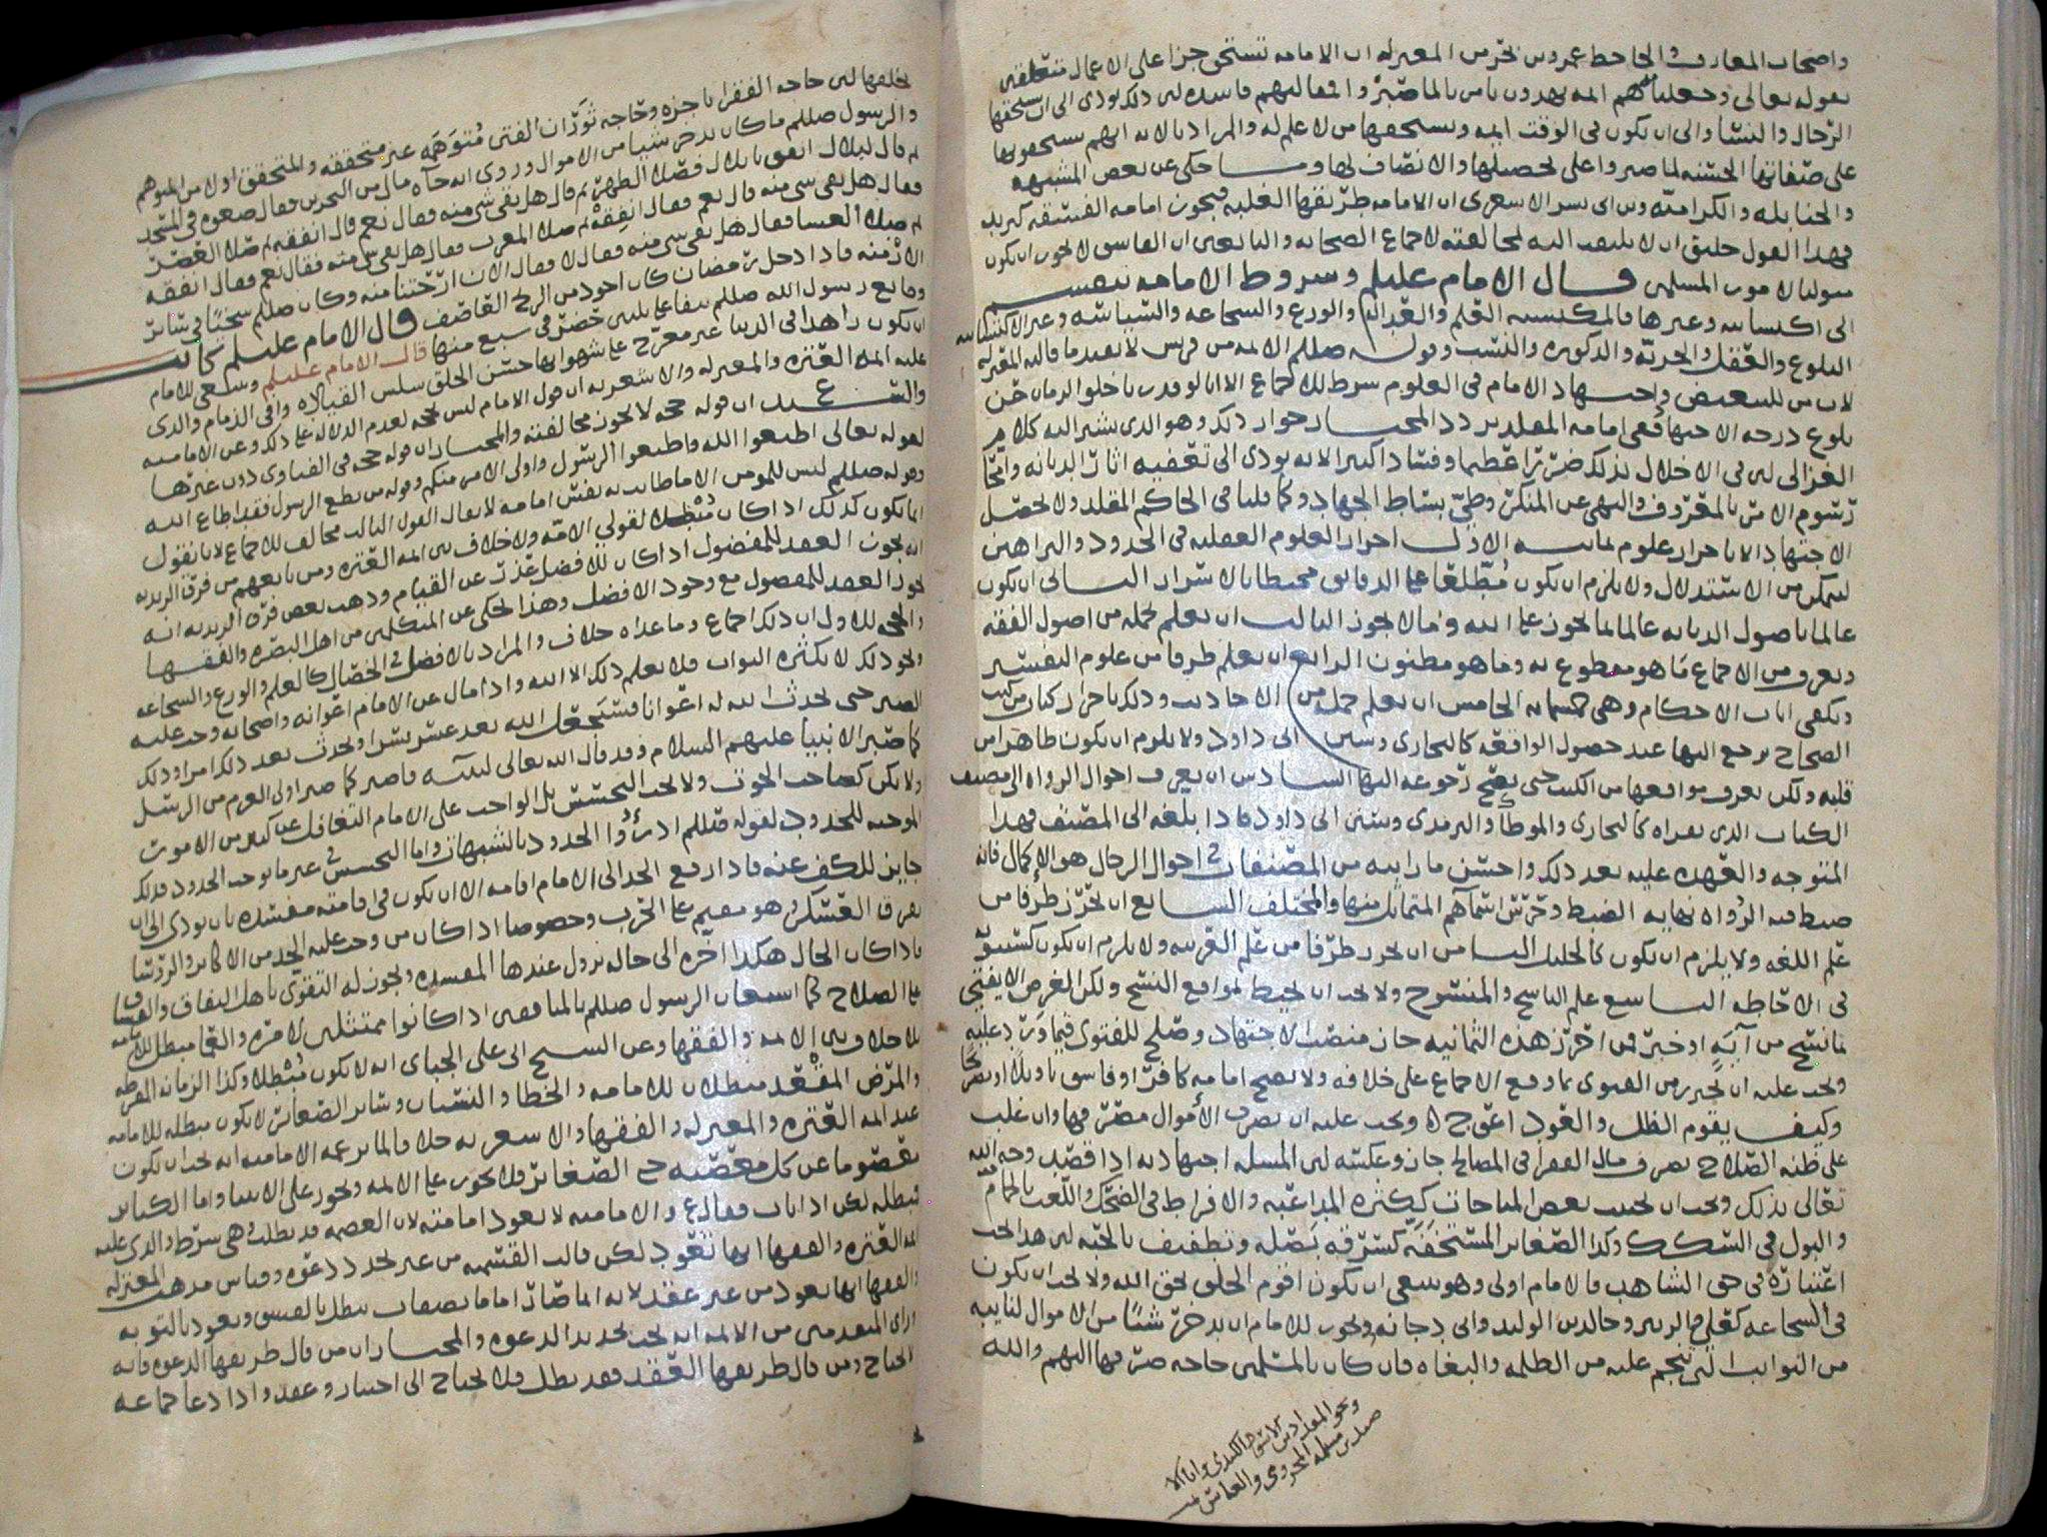 واصحاب المعارف والجاحظ عمرو بن بحر من المعتزله ان الامامه تستحق جزا على الاعمال متعلقين
بقوله تعالى وجعلناهم ائمه يهدون بامرنا لما صبروا فمقالتهم فاسده لان ذلك يودى الى ان يستحقها
الرجال والنسا والى ان يكون فى الوقت ايمه ويستحقها من لا علم له والمراد بالايه انهم يستحقونها
على صفاتها الحسنه لما صبروا على تحصيلها والاتصاف بها وما حكى عن بعض المشبهه
والحنابله والكراميه وبن ابى بسر الاسعرى ان الامامه طريقها الغلبه فيجوز امامه الفسقه كيزيد
فهذا القول خليق ان لا يلتفت اليه لمخالفته لاجماع الصحابه والتابعين ان الفاسق لا يجوز ان يكون
متوليا لامور المسلمين قال الامام عليلم وشروط الامامه تنقسم
الى اكتسابيه وغيرها فالمكتسبه العلم والعداله والورع والسجاعه والسياسه وغير الاكتسابيه
البلوغ والعقل والحريه والذكوره والنسب وقوله صللم الايمه من قريش لا يفيد ما قالته المعتزله
لان من للتبعيض واجتهاد الامام فى العلوم شرط للاجماع الا انا لو قدرنا خلو الزمان عن
بلوغ درجه الاجتهاد ففى امامه المقلد تردد المختار جواز ذلك وهو الذى يشير اليه كلام
الغزالى لان فى الاخلال بذلك ضررا عظيما وفسادا كبيرا لانه يودى الى تعفيه اثار الديانه وامحا
رسوم الامر بالمعروف والنهى عن المنكر وطى بساط الجهاد وكما قلنا فى الحاكم المقلد ولا يحصل
الاجتهاد الا باحراز علوم ثمانيه الاول احراز العلوم العقليه فى الحدود والبراهين
ليتمكن من الاستدلال ولا يلزم ان يكون مطلعا على الدقايق محيطا بالاسرار الثانى ان يكون
عالما باصول الديانه عالما بما يجوز على الله وما لا يجوز الثالث ان يعلم جمله من اصول الفقه
ويعرف من الاجماع ما هو مقطوع به وما هو مظنون الرابع ان يعلم طرفا من علوم التفسير
ويكفى ايات الاحكام وهى خمسمايه الخامس ان يعلم جمله من الاحاديث وذلك باحراز كتاب من كتب
الصحاح يرجع اليها عند حصول الواقعه كالبخارى وسنن ابى داود ولا يلزم ان يكون ظاهرا من
قلبه ولكن يعرف مواقعها من الكتب حتى يصح رجوعه اليها السادس ان يعرف احوال الرواه الى مصنف
الكتاب الذى يقراه كالبخارى والموطا والترمذى وسنن ابى داود فاذا بلغه الى المصنف فهذا
المتوجه والعهده عليه بعد ذلك واحسن ما رايته من المصنفات فى احوال الرجال هو الاكمال فانه
ضبط فيه الرواه نهايه الضبط وحرس اسمآهم المتماثل منها والمختلف السابع ان يحرز طرفا من
علم اللغه ولا يلزم ان يكون كالخليل الثامن ان يحرز طرفا من علم العربيه ولا يلزم ان يكون كسيبويه
فى الاحاطه التاسع علم الناسخ والمنسوخ ولا يجب ان يحيط بمواقع النسخ ولكن الغرض الا يفتى
بما نسخ من آيةٍ او خبر فمن احرز هذه الثمانيه حاز منصب الاجتهاد وصلح للفتوى فيما ورد عليه
ويجب عليه ان يحترز من الفتوى بما وقع الاجماع على خلافه ولا يصح امامه كافر او فاسق تاويلا او تصريحا
وكيف يقوم الظل والعود اعوج ويجب عليه ان يصرف الأموال مصرفها وان غلب
على ظنه الصلاح بصرف مال الفقرا فى المصالح جاز وعكسه لان المسله اجتهاديه اذا قصد وجه الله
تعالى بذلك ويجب ان يجتنب بعض المباحات ككثره المداعبه والافراط فى الضحك واللعب بالحمام
والبول فى السكك وكذا الصغاير المستخفه كسرقه بصله وتطفيف بالحبه لان هذا يجب
اعتباره فى حق الشاهد فالامام اولى وهو ينبغى ان يكون اقوم الخلق بحق الله ولا يجب ان يكون
فى السجاعه كعلى والزبير وخالد بن الوليد وابى دجانه ويجوز للامام ان يدخر شيئا من الاموال لنايبه
من النوايب التى تنجم عليه من الظلمه والبغاه فان كان بالمسلمين حاجه صرفها اليهم والله
يخلفها لان حاجه الفقرا ناجزه وحاجه نوران الفتن متوهمه غير متحققه والمتحقق اولا من المتوهم
والرسول صللم ما كان يدخر شيا من الاموال وروى انه جآه مال من البحرين فقال ضعوه فى المسجد
ثم قال لبلال انفق يا بلال فصلا الظهر ثم قال هل بقى شى منه فقال نعم قال انفقه ثم صلا العصر
فقال هل بقى شى منه قال نعم فقال انفقه ثم صلا المغرب فقال هل بقى شى منه فقال نعم فقال انفقه
ثم صلا العسا فقال هل بقى شى منه فقال لا فقال الان ارحتنا منه وكان صللم سخيا فى ساير
الازمنه فاذا دخل رمضان كان اجود من الريح العاصف قال الامام عليلم كان
قال الامام عليلم وينبغى للامام
ان يكون زاهدا فى الدنيا غير معرج على شهواتها حسن الخلق سلس القياد وافى الذمام والذى
عليه ايمه العتره والمعتزله والاشعريه ان قول الامام ليس بحجه لعدم الدلاله على ذلك وعن الاماميه
ان قوله حجه لا يجوز مخالفته والمختار ان قوله حجه فى الفتاوى دون غيرها
لقوله تعالى اطيعوا الله واطيعوا الرسول واولى الامر منكم وقوله من يطع الرسول فقد اطاع الله
وقوله صللم ليس للمومن الا ما طابت به نفس امامه لا يقال القول الثالث مخالف للاجماع لانا نقول
انما يكون كذلك اذا كان مبطلا لقولى الامه ولا خلاف بين ايمه العتره ومن تابعهم من فرق الزيديه
انه يجوز العقد للمفضول اذا كان للافضل عذر عن القيام وذهب بعض فرق الزيديه انه
يجوز العقد للمفضول مع وجود الافضل وهذا يحكى عن المتكلمين من اهل البصره والفقها
والحجه للاول ان ذلك اجماع وما عداه خلاف والمراد بالافضل فى الخصال كالعلم والورع والسجاعه
ونحو ذلك لا بكثره الثواب فلا يعلم ذلك الا الله واذا مال عن الامام اعوانه واصحابه وجب عليه
الصبر حتى يحدث الله له اعوانا فسيجعل الله بعد عسر يسرا ويحدث بعد ذلك امرا وذلك
كما صبر الانبيا عليهم السلام وقد قال الله تعالى لنبيه فاصبر كما صبر اولى العزم من الرسل
ولا تكن كصاحب الحوت ولا يجب التحسس بل الواجب على الامام التغافل عن كثير من الامور
الموجبه للحدود لقوله صللم ادرؤوا الحدود بالشبهات واما التحسس فى غير ما يوجب الحدود فذلك
جايز للكف عنه فاذا رفع الحد الى الامام اقامه الا ان يكون فى اقامته مفسده بان يودى الى ان
يفرق العسكر وهو مقيم على الحرب وخصوصا اذا كان من وجب عليه الحد من الاكابر والروسا
فاذا كان الحال هكذا اخره الى حاله تزول عندها المفسده ويجوز له التقوى باهل النفاق والفساق
على الصلاح كما استعان الرسول صللم بالمنافقين اذا كانوا ممتثلين لامره والعما مبطل للامامه
بلا خلاف بين الايمه والفقها وعن الشيخ ابى على الجباى انه لا يكون مبطلا وكذا الزمانه المفرطه
والمرض المقعد مبطلان للامامه والخطا والنسيان وساير الصغاير لا يكون مبطله للامامه
عند ايمه العتره والمعتزله والفقها والاسعريه خلافا لما يزعمه الاماميه انه يجب ان يكون
معصوما عن كل معصيه حتى الصغاير فلا يجوز على الايمه ويجوز على الانبيا واما الكباير
مبطله لكن اذا تاب فقال ع والاماميه لا يعود امامته لان العصمه قد بطلت وهى شرط والذى عليه
ايمه العتره والفقها انها تعود لكن قالت القسميه من غير تجدد دعوه وقياس مذهب المعتزله
والفقها انها يعود من غير عقد لانه انما صار اماما بصفات تبطل بالفسق ويعود بالتوبه
وراى المتقدمين من الايمه انه يجب تجديد الدعوه والمختار ان من قال طريقها الدعوه فانه
يحتاج ومن قال طريقها العقد فقد بطل فلا يحتاج الى اختيار وعقد واذا دعا جماعه